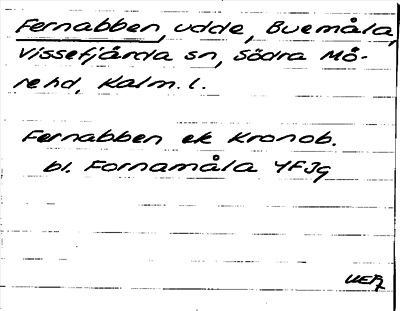 Fernabben, udde, Buemåla,
Vissefjärda sn, Södra Mö-
re hd, Kalm. l.
Fernabben ek Kronob.
bl. Fornamåla 4F3g